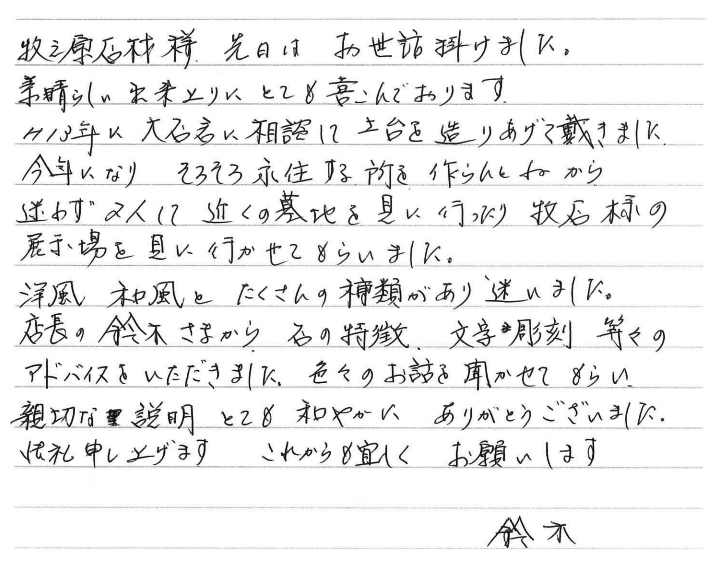 牧之原石材様 先日は お世話掛けました。
素晴らしい出来上りに とても喜こんでおります
H13年に 大石君に相談して 土台を造りあげて戴きました
今年になり そろそろ永住する所を作らんとねから
迷わず2人して 近くの墓地を見に行ったり 牧石様の
展示場を見に行かせてもらいました。
洋風 和風と たくさんの種類があり迷いました。
店長の鈴木さまから 石の特徴、文字・彫刻 等々の
アドバイスをいただきました、色々のお話を聞かせてもらい
親切な説明 とても和やかに ありがとうございました.
御礼申し上げます これからも宜しく お願いします
鈴木